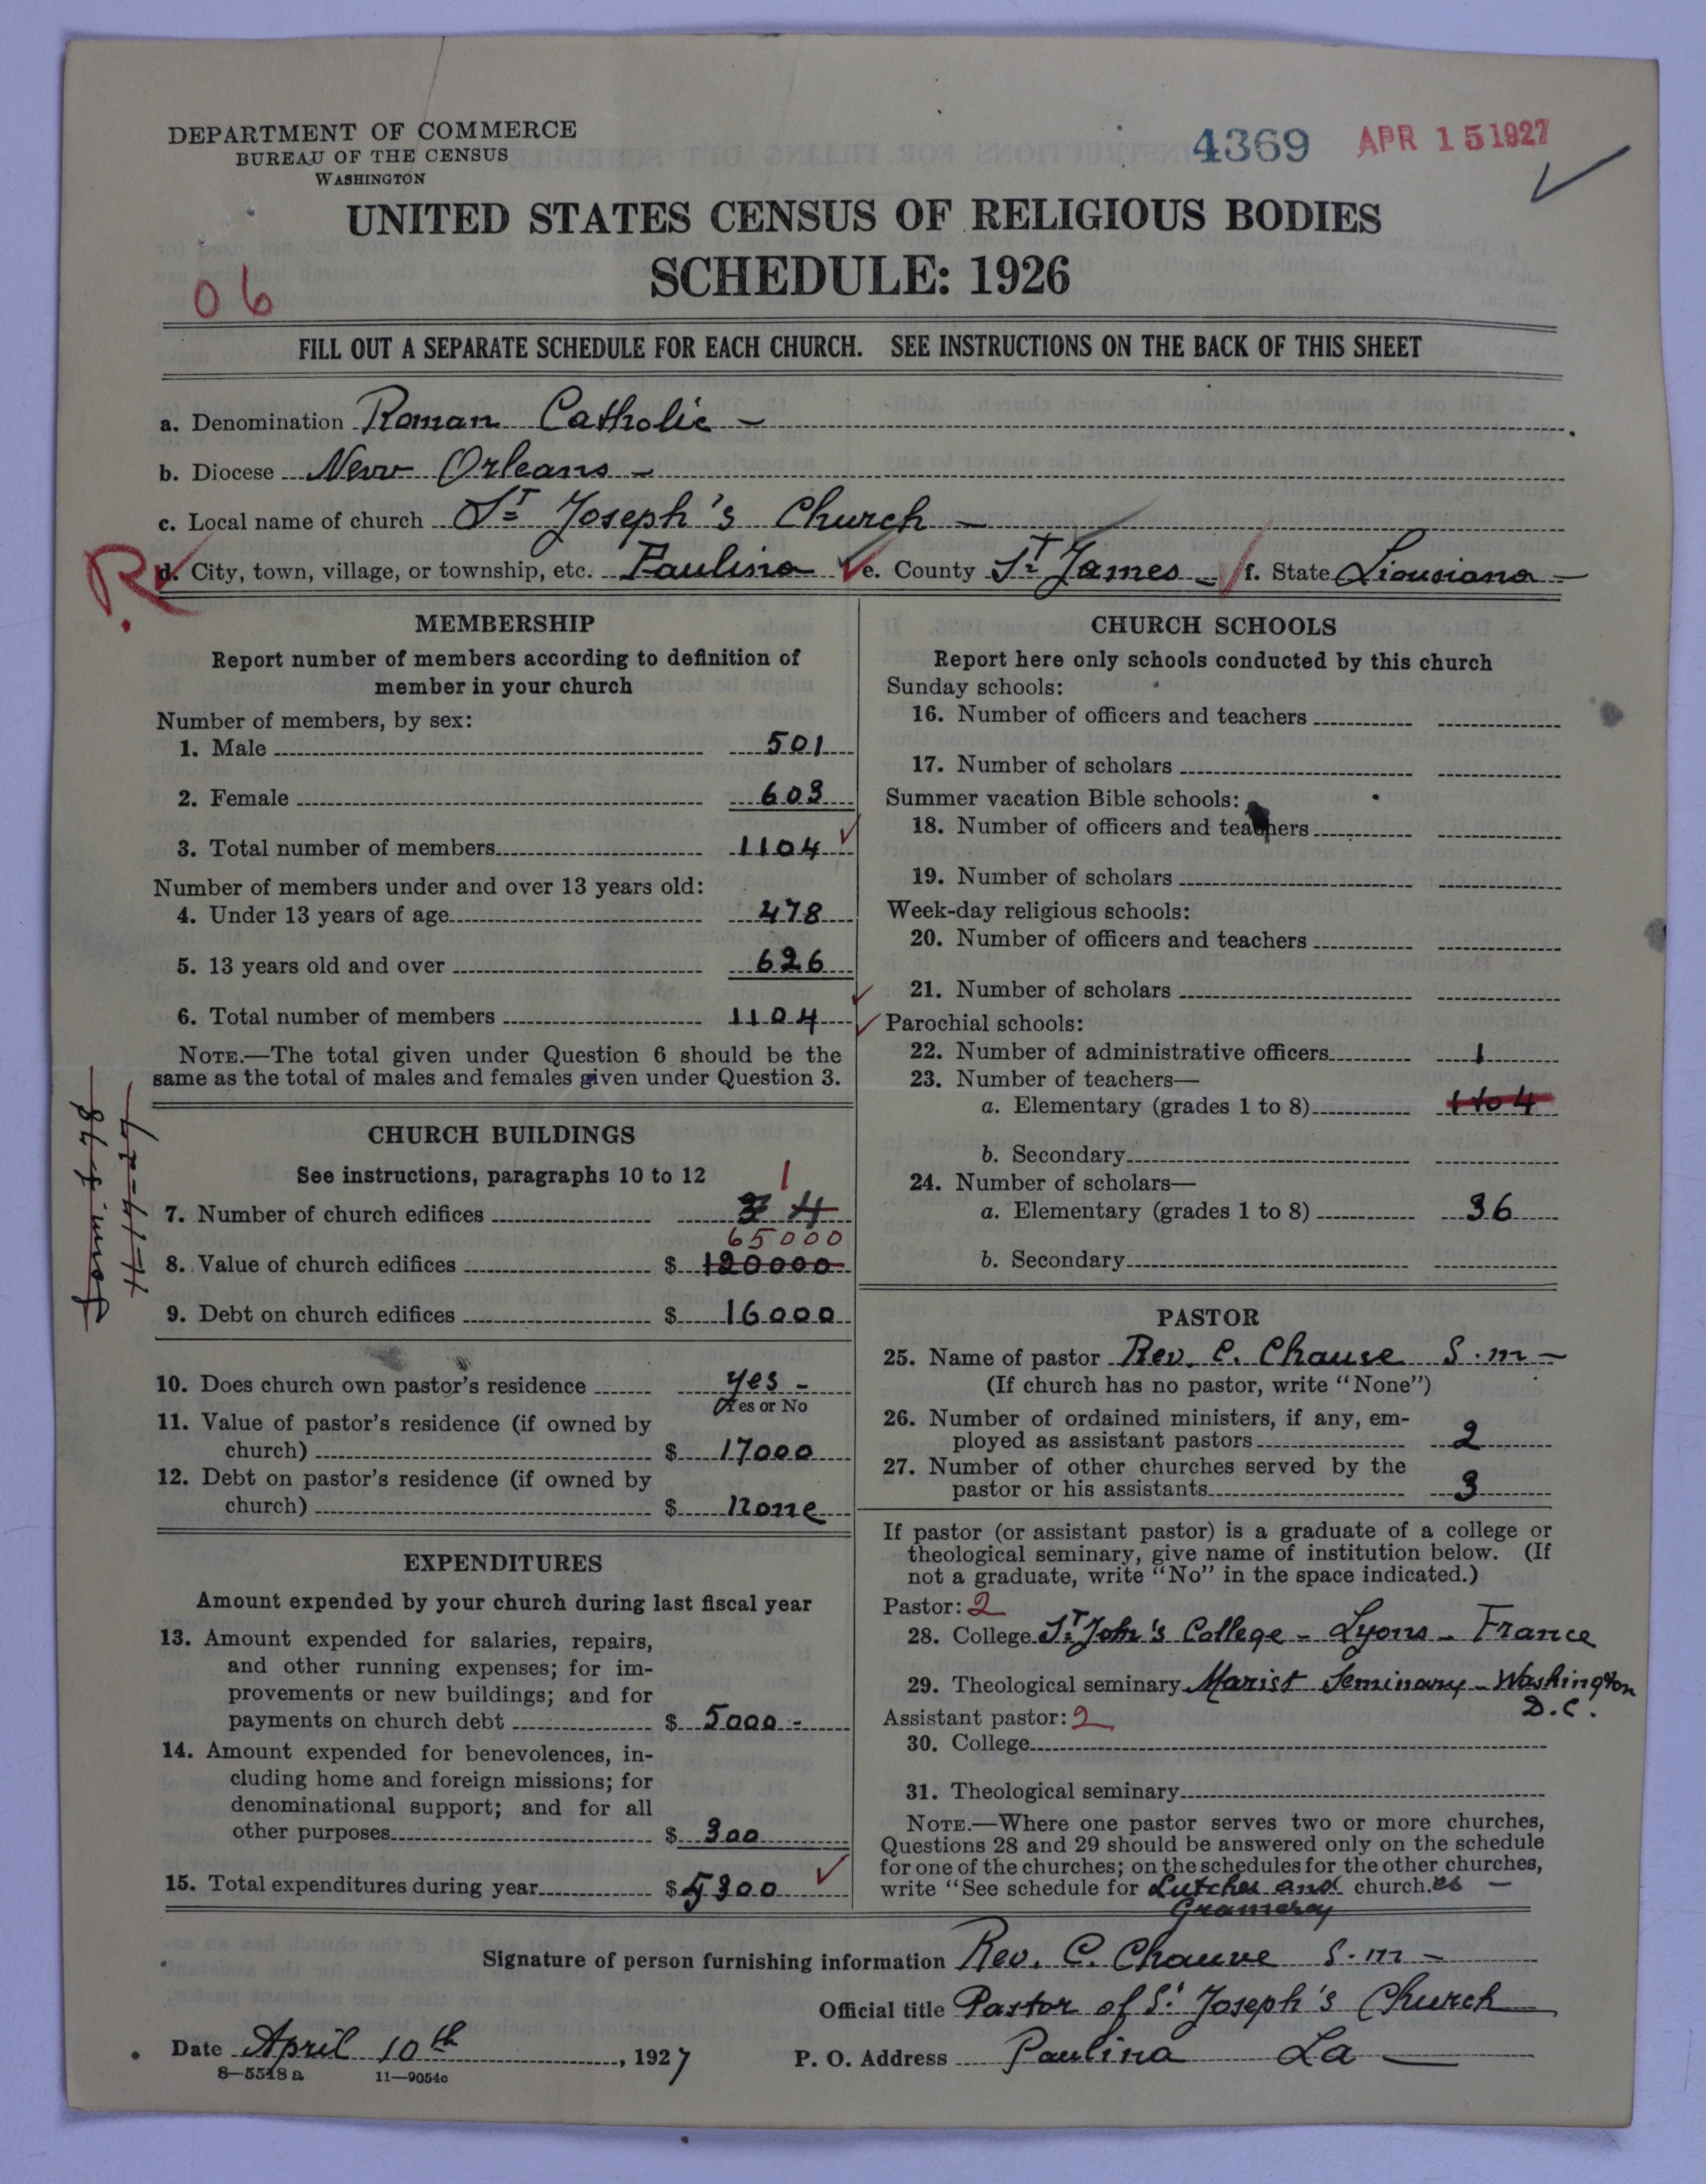 DEPARTMENT OF COMMERCE
BUREAU OF THE CENSUS
WASHINGTON
4369 APR 15 1927
UNITED STATES CENSUS OF RELIGIOUS BODIES
SCHEDULE: 1926
06
FILL OUT A SEPARATE SCHEDULE FOR EACH CHURCH. SEE INSTRUCTIONS ON THE BACK OF THIS SHEET
a. Denomination Roman Catholic
b. Diocese New Orleans
c. Local name of church St Joseph's Church
R
d. City, town, village, or township, etc. Paulina e. County St James f. State Liousiana
MEMBERSHIP
Report number of members according to definition of
member in your church
Number of members, by sex:
1. Male 501
2. Female 603
3. Total number of members 1104
Number of members under and over 13 years old:
4. Under 13 years of age 478
5. 13 years old and over 626
6. Total number of members 1104
NOTE.—The total given under Question 6 should be the
same as the total of males and females given under Question 3.
CHURCH BUILDINGS
See instructions, paragraphs 10 to 12
1
7. Number of church edifices 3 4
65000
8. Value of church edifices $ 120000
9. Debt on church edifices $ 16000
10. Does church own pastor's residence yes -
Yes or No
11. Value of pastor's residence (if owned by
church) $ 17000
12. Debt on pastor's residence (if owned by
church) $ None
EXPENDITURES
Amount expended by your church during last fiscal year
13. Amount expended for salaries, repairs,
and other running expenses; for im-
provements or new buildings; and for
payments on church debt $ 5000 -
14. Amount expended for benevolences, in-
cluding home and foreign missions; for
denominational support; and for all
other purposes $ 300
15. Total expenditures during year $ 5300
CHURCH SCHOOLS
Report here only schools conducted by this church
Sunday schools:
16. Number of officers and teachers
17. Number of scholars
Summer vacation Bible schools:
18. Number of officers and teachers
19. Number of scholars
Week-day religious schools:
20. Number of officers and teachers
21. Number of scholars
Parochial schools:
22. Number of administrative officers 1
23. Number of teachers—
a. Elementary (grades 1 to 8) 1 to 4
b. Secondary
24. Number of scholars—
a. Elementary (grades 1 to 8) 36
b. Secondary
PASTOR
25. Name of pastor Rev. C. Chauve S.M -
(If church has no pastor, write "None")
26. Number of ordained ministers, if any, em-
ployed as assistant pastors 2
27. Number of other churches served by the
pastor or his assistants 3
If pastor (or assistant pastor) is a graduate of a college or
theological seminary, give name of institution below. (If
not a graduate, write "No" in the space indicated.)
Pastor: 2
28. College St John's College - Lyons - France
29. Theological seminary Marist Seminary - Washington
D.C.
Assistant pastor: 2
30. College
31. Theological seminary
NOTE.—Where one pastor serves two or more churches,
Questions 28 and 29 should be answered only on the schedule
for one of the churches; on the schedules for the other churches,
write "See schedule for Lutcher and church.es -
Gramercy
Signature of person furnishing information Rev. C. Chauve S.M -
Official title Pastor of St Joseph's Church
Date April 10th, 1927 P. O. Address Paulina La
8—5518 a 11—9054c